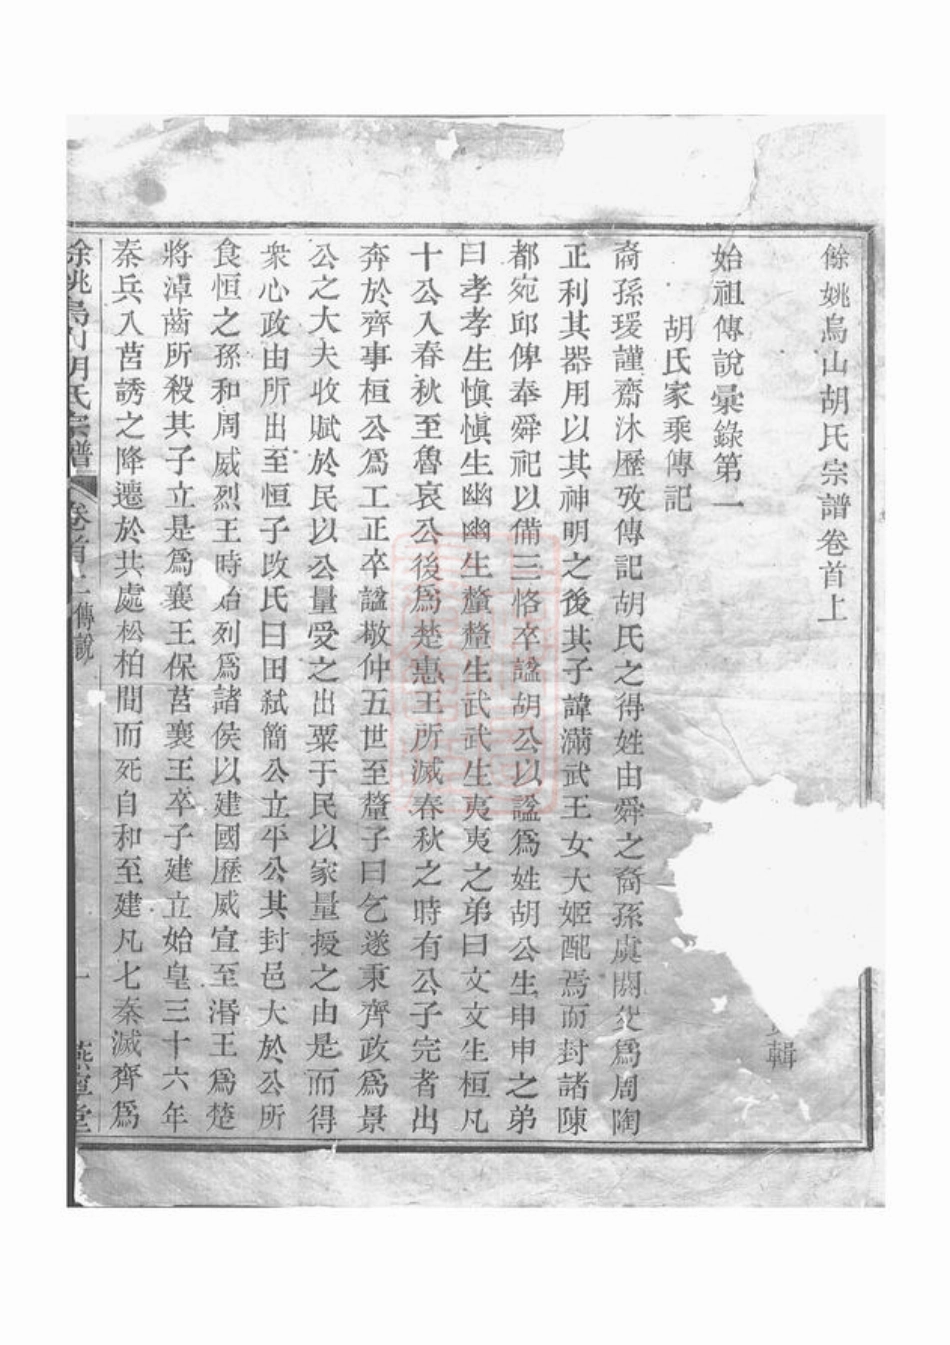 餘姚烏山胡氏宗譜卷首上
輯
始祖傳說彙錄第一
胡氏家乘傳記
裔孫瑗謹齋沐歷攷傳記胡氏之得姓由舜之裔孫虞閼父爲周陶
正利其器用以其神明之後其子諱滿武王女大姬配焉而封諸陳
都宛邱俾奉舜祀以備三恪卒諡胡公以諡爲姓胡公生申申之弟
曰孝孝生愼愼生幽幽生釐釐生武武生夷夷之弟曰文文生桓凡
十公入春秋至魯哀公後爲楚惠王所滅春秋之時有公子完者出
奔於齊事桓公爲工正卒諡敬仲五世至釐子曰乞遂秉齊政爲景
公之大夫收賦於民以公量受之出粟于民以家量授之由是而得
衆心政由所出至恒子改氏曰田弑簡公立平公其封邑大於公所
食恒之孫和周威烈王時始列爲諸侯以建國歷威宣至湣王爲楚
將淖齒所殺其子立是爲襄王保莒襄王卒子建立始皇三十六年
秦兵入莒誘之降遷於共處松柏間而死自和至建凡七秦滅齊爲
餘姚烏山胡氏宗譜 卷首上 傳說 一 燕翼堂